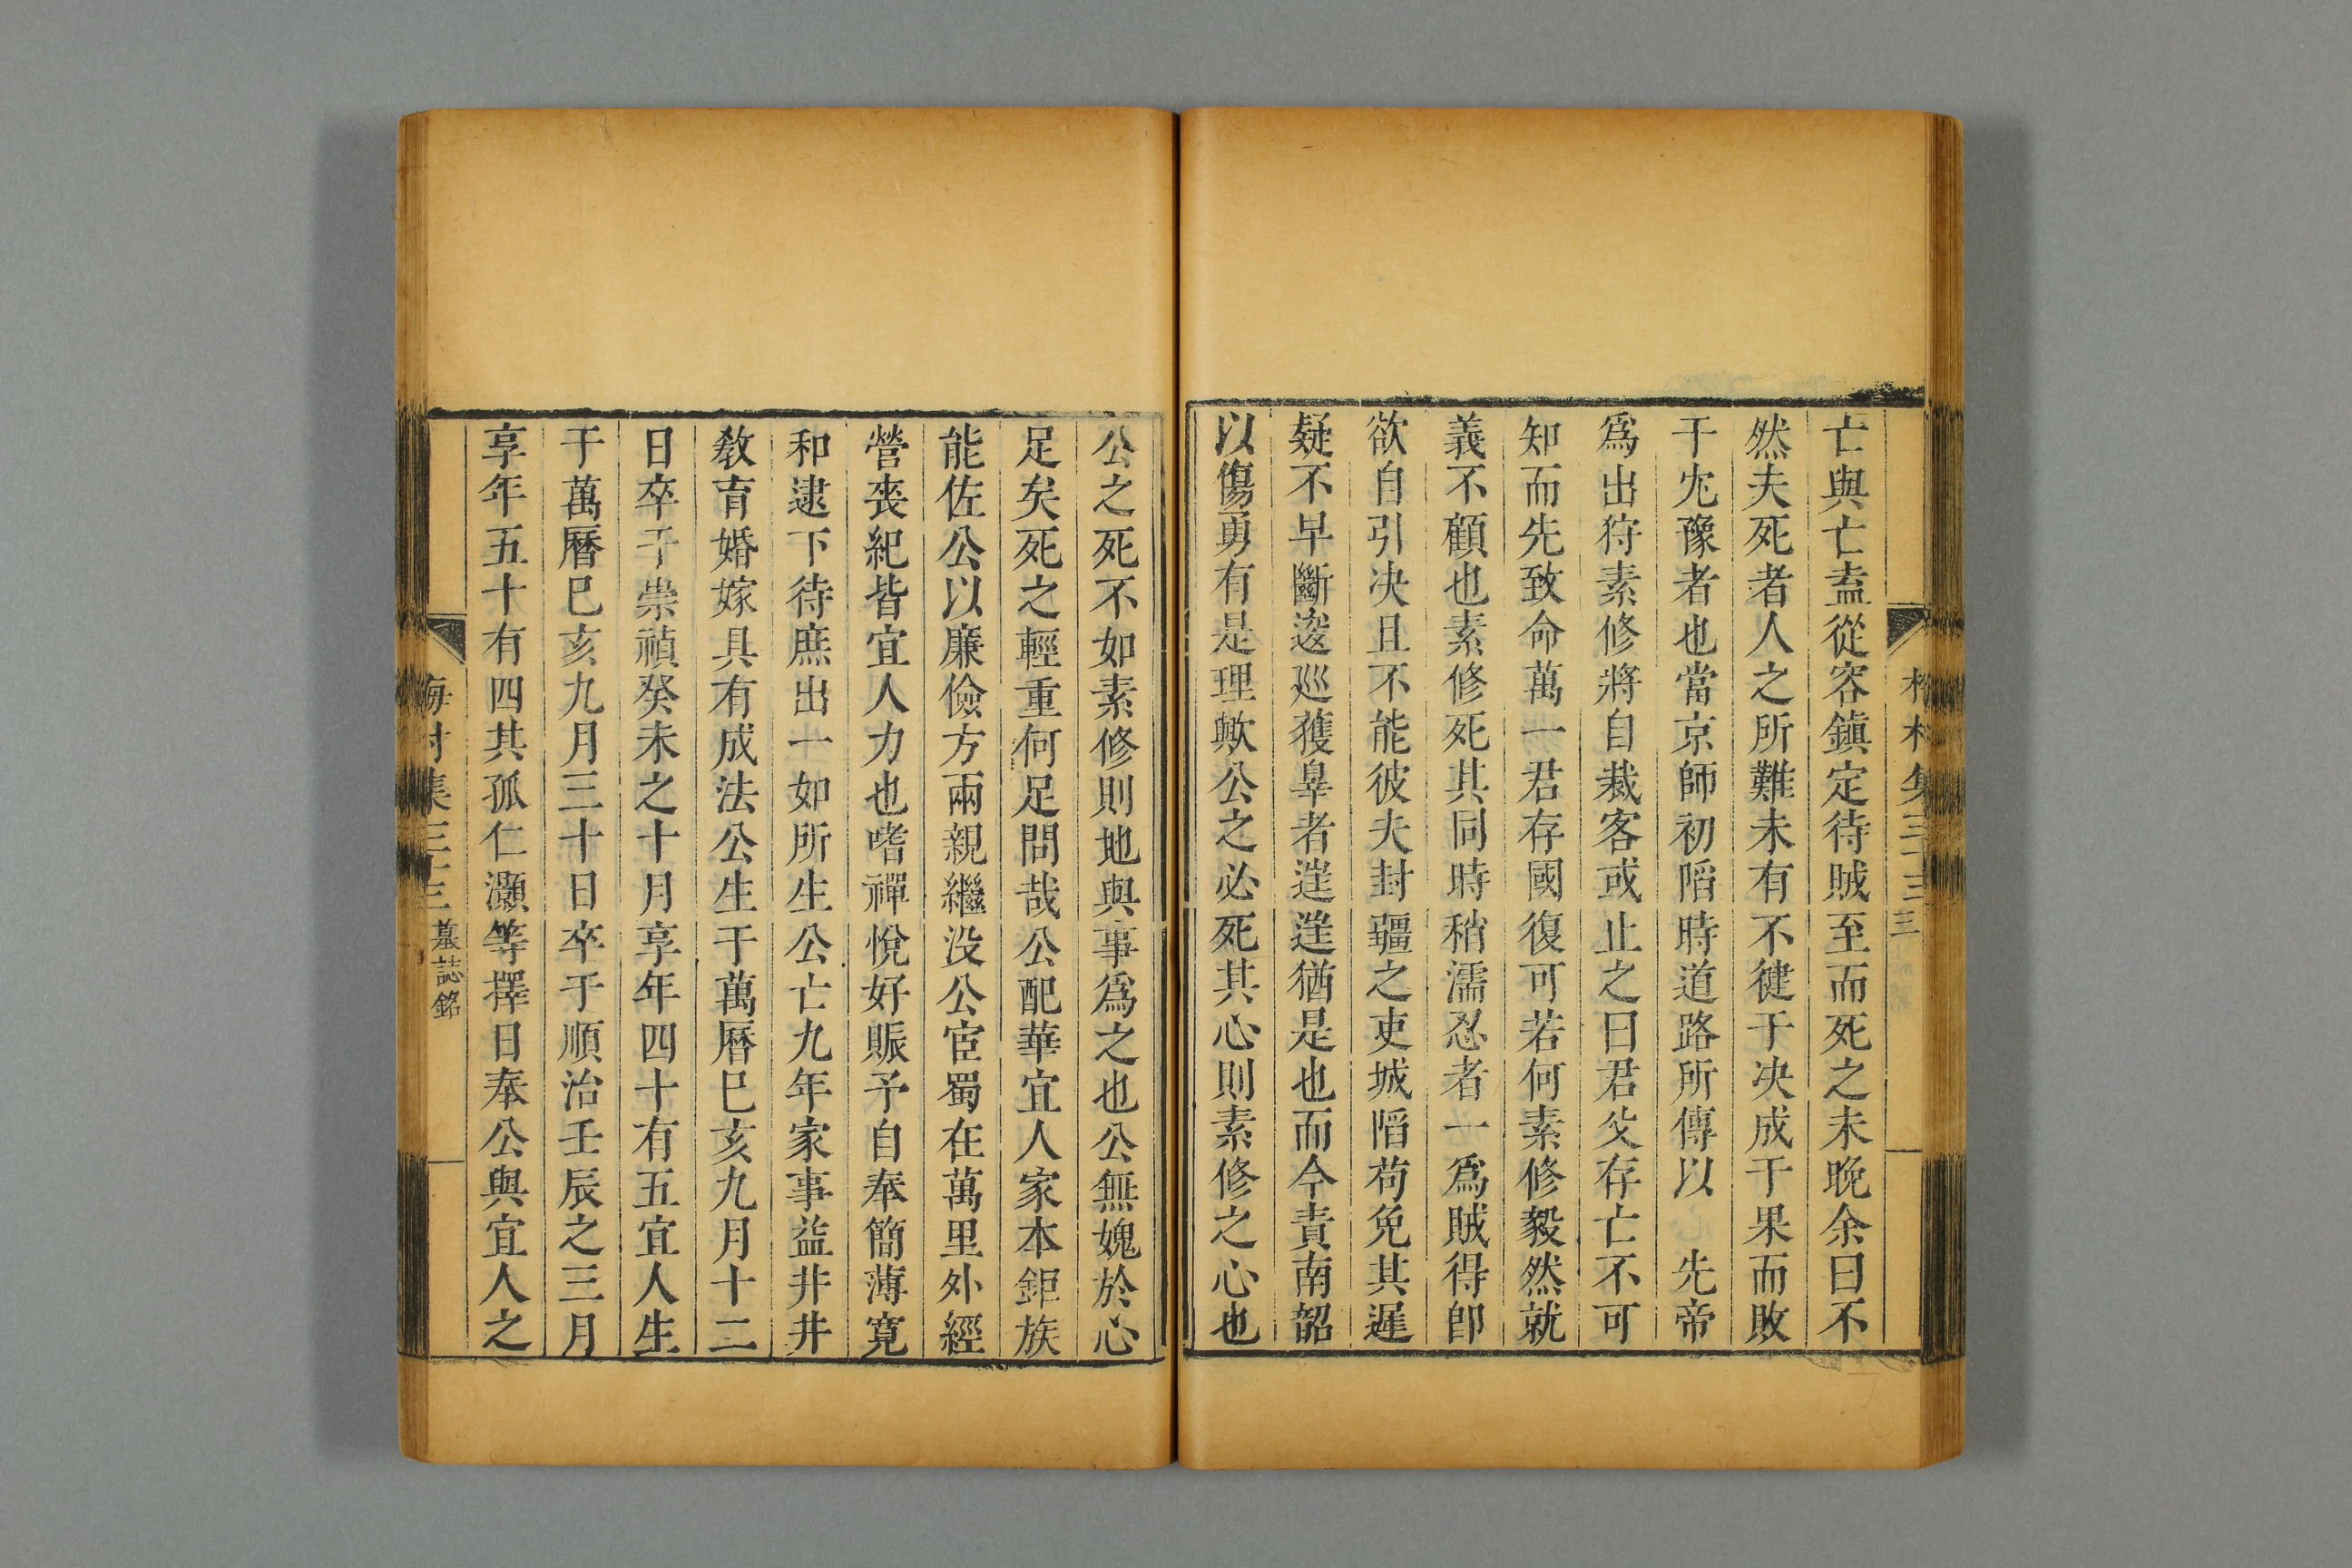 亡與亡盍從容鎮定待賊至而死之未晚余曰不
然夫死者人之所難未有不徤于决成于果而敗
于冘豫者也當京師初䧟時道路所傳以 先帝
爲出狩素修將自裁客或止之曰君父存亡不可
知而先致命萬一君存國復可若何素修毅然就
義不顧也素修死其同時稍濡忍者一爲賊得卽
欲自引决且不能彼夫封疆之吏城䧟苟免其遲
疑不早斷逡廵獲辠者逬逬猶是也而今責南韶
以傷勇有是理歟公之必死其心則素修之心也
公之死不如素修則地與事爲之也公無媿於心
足矣死之輕重何足問哉公配華宜人家本鉅族
能佐公以廉儉方兩親繼没公宦蜀在萬里外經
營喪紀皆宜人力也嗜禪悅好賑予自奉簡薄寛
和逮下待庶出一如所生公亡九年家事益井井
敎育婚嫁具有成法公生于萬曆巳亥九月十二
日卒于崇禎癸未之十月享年四十有五宜人生
于萬曆巳亥九月三十日卒于順治壬辰之三月
享年五十有四其孤仁灝等擇日奉公與宜人之
墓誌銘